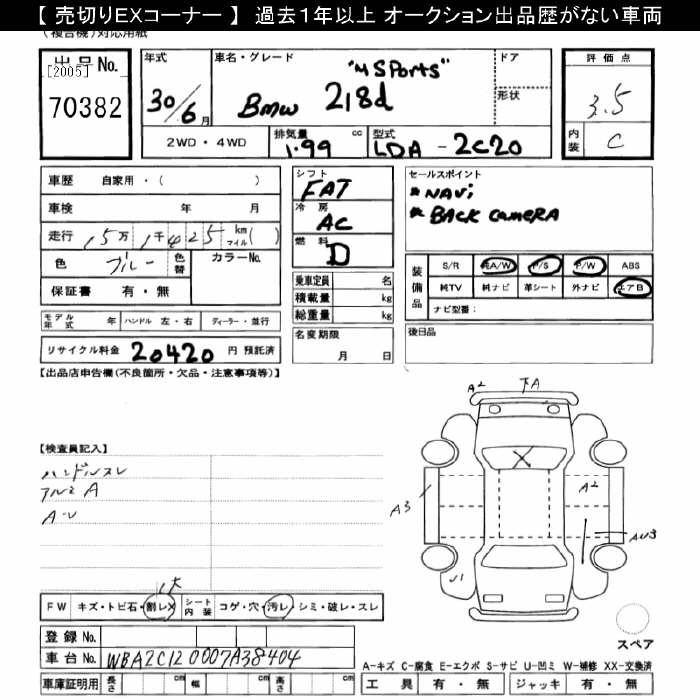 【 売切りEXコーナー 】 過去1年以上 オークション出品歴がない車両
(複合機)対応用紙
出品No.
[2005]
70382
年式
30/6月
車名・グレード
BMW 218d "M SPorts"
ドア
形状
評価点
3.5
内装
C
2WD・4WD
排気量
1.99 cc
型式
LDA - 2C20
車歴 自家用・( )
車検 年 月
走行 15万 1千425 km マイル( )
色 ブルー 色替 カラーNo.
保証書 有・無
シフト
FAT
冷房
AC
燃料
D
乗車定員 名
積載量 kg
総重量 kg
セールスポイント
* NAVi
* BACK CAMERA
装備品
S/R 純A/W P/S P/W ABS
純TV 純ナビ 革シート 外ナビ エアB
ナビ型番:
モデル年式 年 ハンドル 左・右 ディーラー・並行
名変期限
月 日
後日品
リサイクル料金 20420 円 預託済
【出品店申告欄(不良箇所・欠品・注意事項等)】
A2
下A
【検査員記入】
ハンドルスレ
アルミ A
A-U
X
A3
A2
AU3
U1
大
FW キズ・トビ石・割レX シート内装 コゲ・穴・汚レ・シミ・破レ・スレ
スペア
登録No.
車台No. WBA2C120007A38404
A-キズ C-腐食 E-エクボ S-サビ U-凹ミ W-補修 XX-交換済
車庫証明用 長さ cm 幅 cm 高さ cm
工具 有・無 ジャッキ 有・無